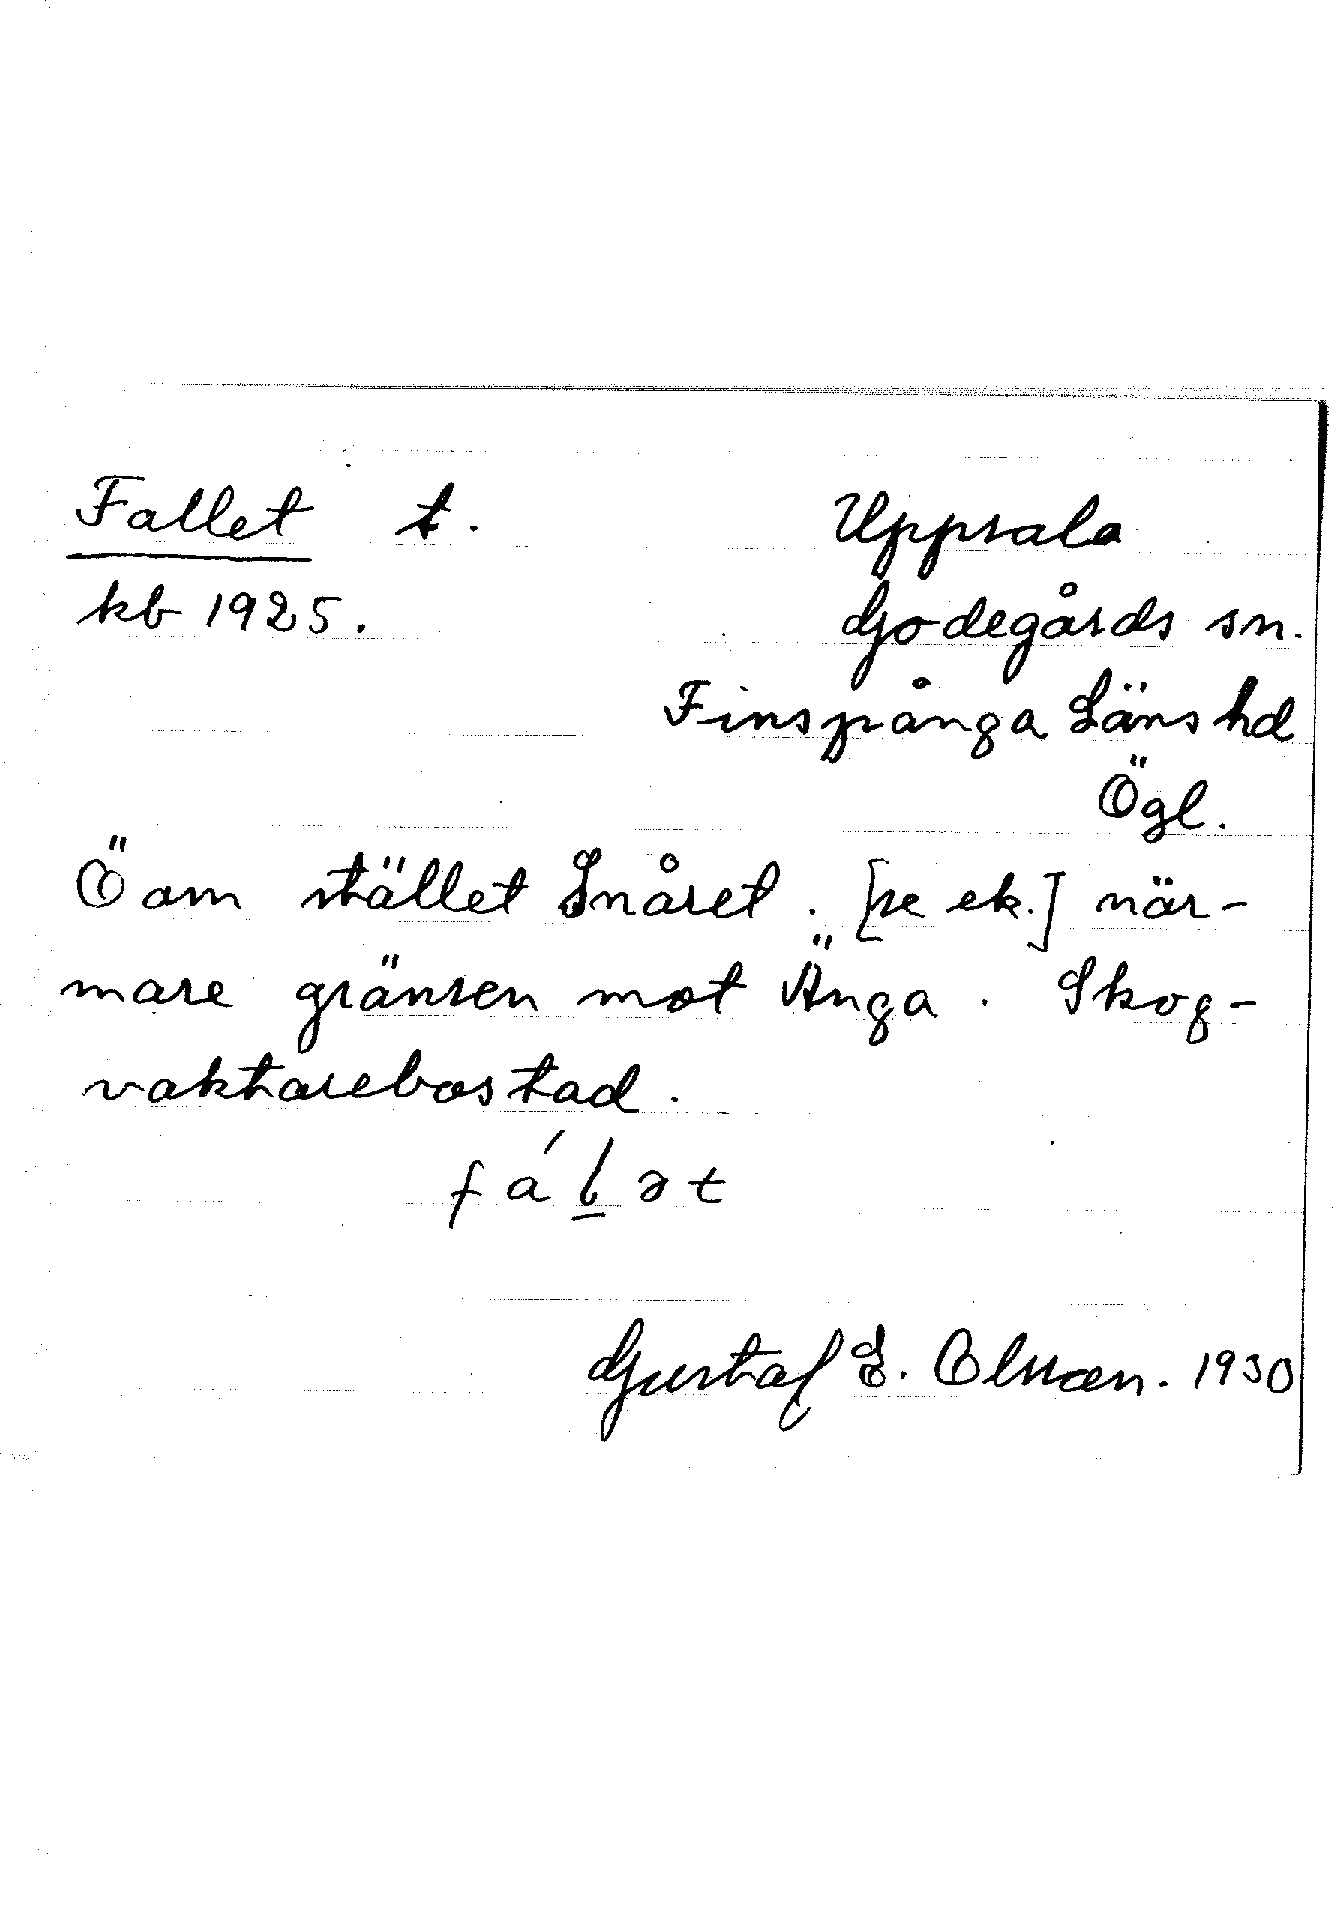 Fallet t.
Uppsala
kb 1925.
Godegårds sn.
Finspånga Läns hd
Ögl.
Ö om stället Snåret. [se ek.] när-
mare gränsen mot Änga. Skog-
vaktarebostad.
fál̲ət
Gustaf E. Olsson. 1930